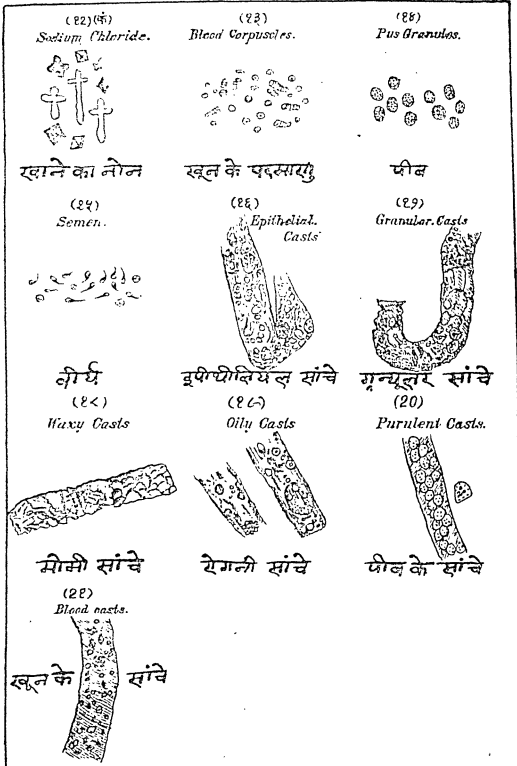 (१२)(कं)
Sodium Chloride.
खाने का नोन
(१३)
Blood Corpuscles.
खून के
(१४)
Pus Granules.
पीब
(१५)
Semen.
वीर्य
(१६)
Epithelial
Casts
इपीथीलियल सांचे
(१७)
Granular. Casts
ग्रन्यूलर सांचे
(१८)
Waxy Casts
मोमी सांचे
(१९)
Oily Casts
रोगनी सांचे
(20)
Purulent Casts.
पीब के सांचे
(२१)
Blood casts.
खून के सांचे